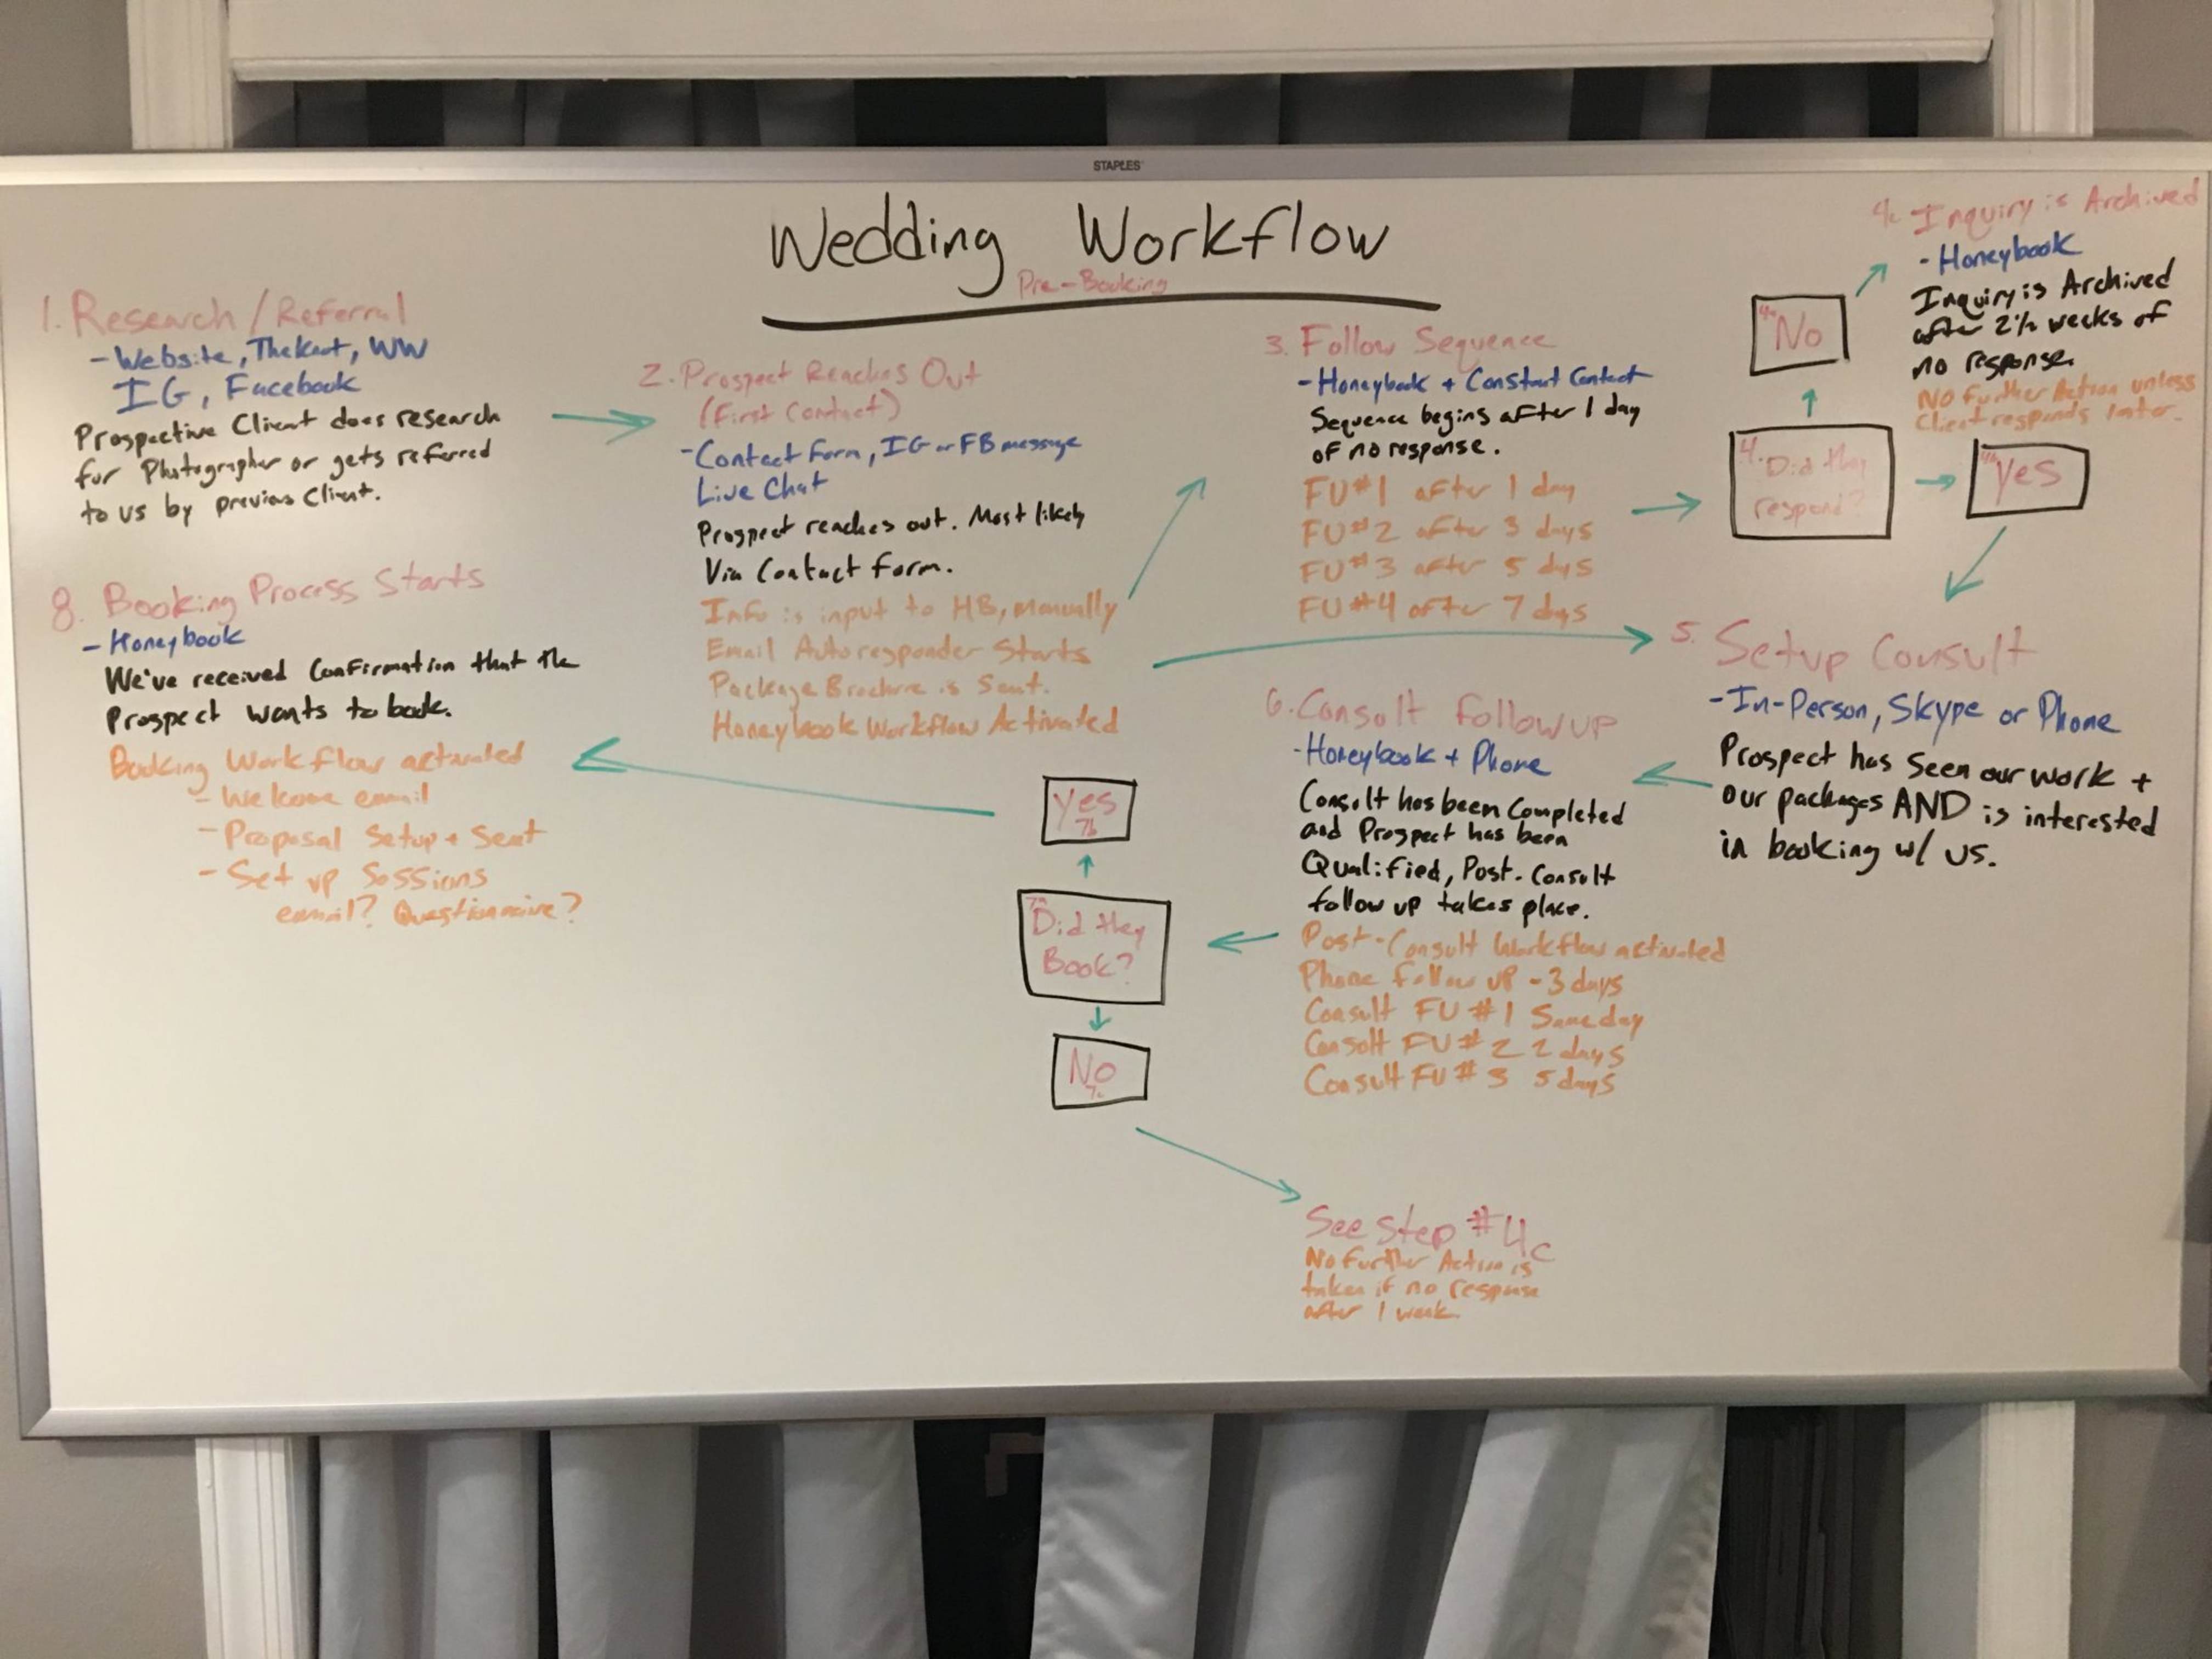 STAPLES
Wedding Workflow
Pre-Booking
1. Research/Referral
- Website, TheKnot, WW
IG, Facebook
Prospective Client does research
for Photographer or gets referred
to us by previous Client.
2. Prospect Reaches Out
(First Contact)
- Contact Form, IG or FB message
Live Chat
Prospect reaches out. Most likely
Via Contact Form.
Info is input to HB, manually
Email Autoresponder Starts
Package Brochure is Sent.
Honeybook Workflow Activated
3. Follow Sequence
- Honeybook + Constant Contact
Sequence begins after 1 day
of no response.
FU#1 after 1 day
FU#2 after 3 days
FU#3 after 5 days
FU#4 after 7 days
4. Did they
respond?
4a No
4b Yes
4c Inquiry is Archived
- Honeybook
Inquiry is Archived
after 2 1/2 weeks of
no response.
No further Action unless
Client responds later.
5. Setup Consult
- In-Person, Skype or Phone
Prospect has seen our work +
our packages AND is interested
in booking w/ us.
6. Consult Follow up
- Honeybook + Phone
Consult has been Completed
and Prospect has been
Qualified, Post-Consult
follow up takes place.
Post-Consult Workflow activated
Phone follow up - 3 days
Consult FU #1 Same day
Consult FU # 2 2 days
Consult FU # 3 5 days
7a Did they
Book?
Yes
7b
No
7c
See Step #4c
No further Action is
taken if no response
after 1 week.
8. Booking Process Starts
- Honeybook
We've received Confirmation that the
Prospect wants to book.
Booking Workflow activated
- Welcome email
- Proposal Setup + Sent
- Set up Sessions
email? Questionnaire?